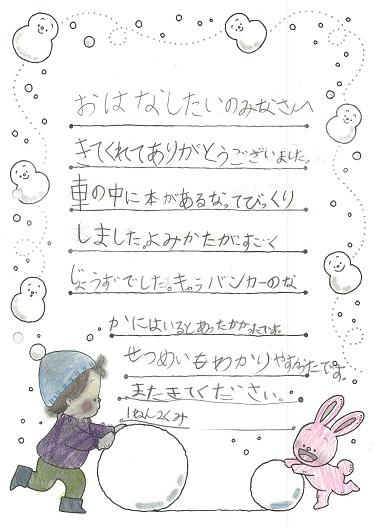 おはなしたいのみなさんへ
きてくれてありがとうございました。
車の中に本があるなってびっくり
しました。よみかたがすごく
じょうずでした。キャラバンカーのな
かにはいるとあったかかったです。
せつめいもわかりやすかったです。
またきてください。
1ねん2くみ